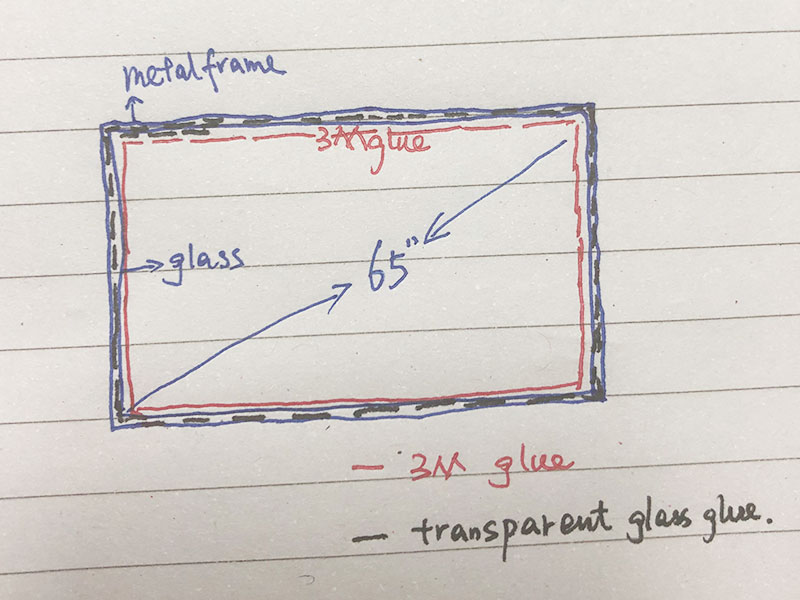 metal frame
3M glue
65"
glass
— 3M glue
— transparent glass glue.